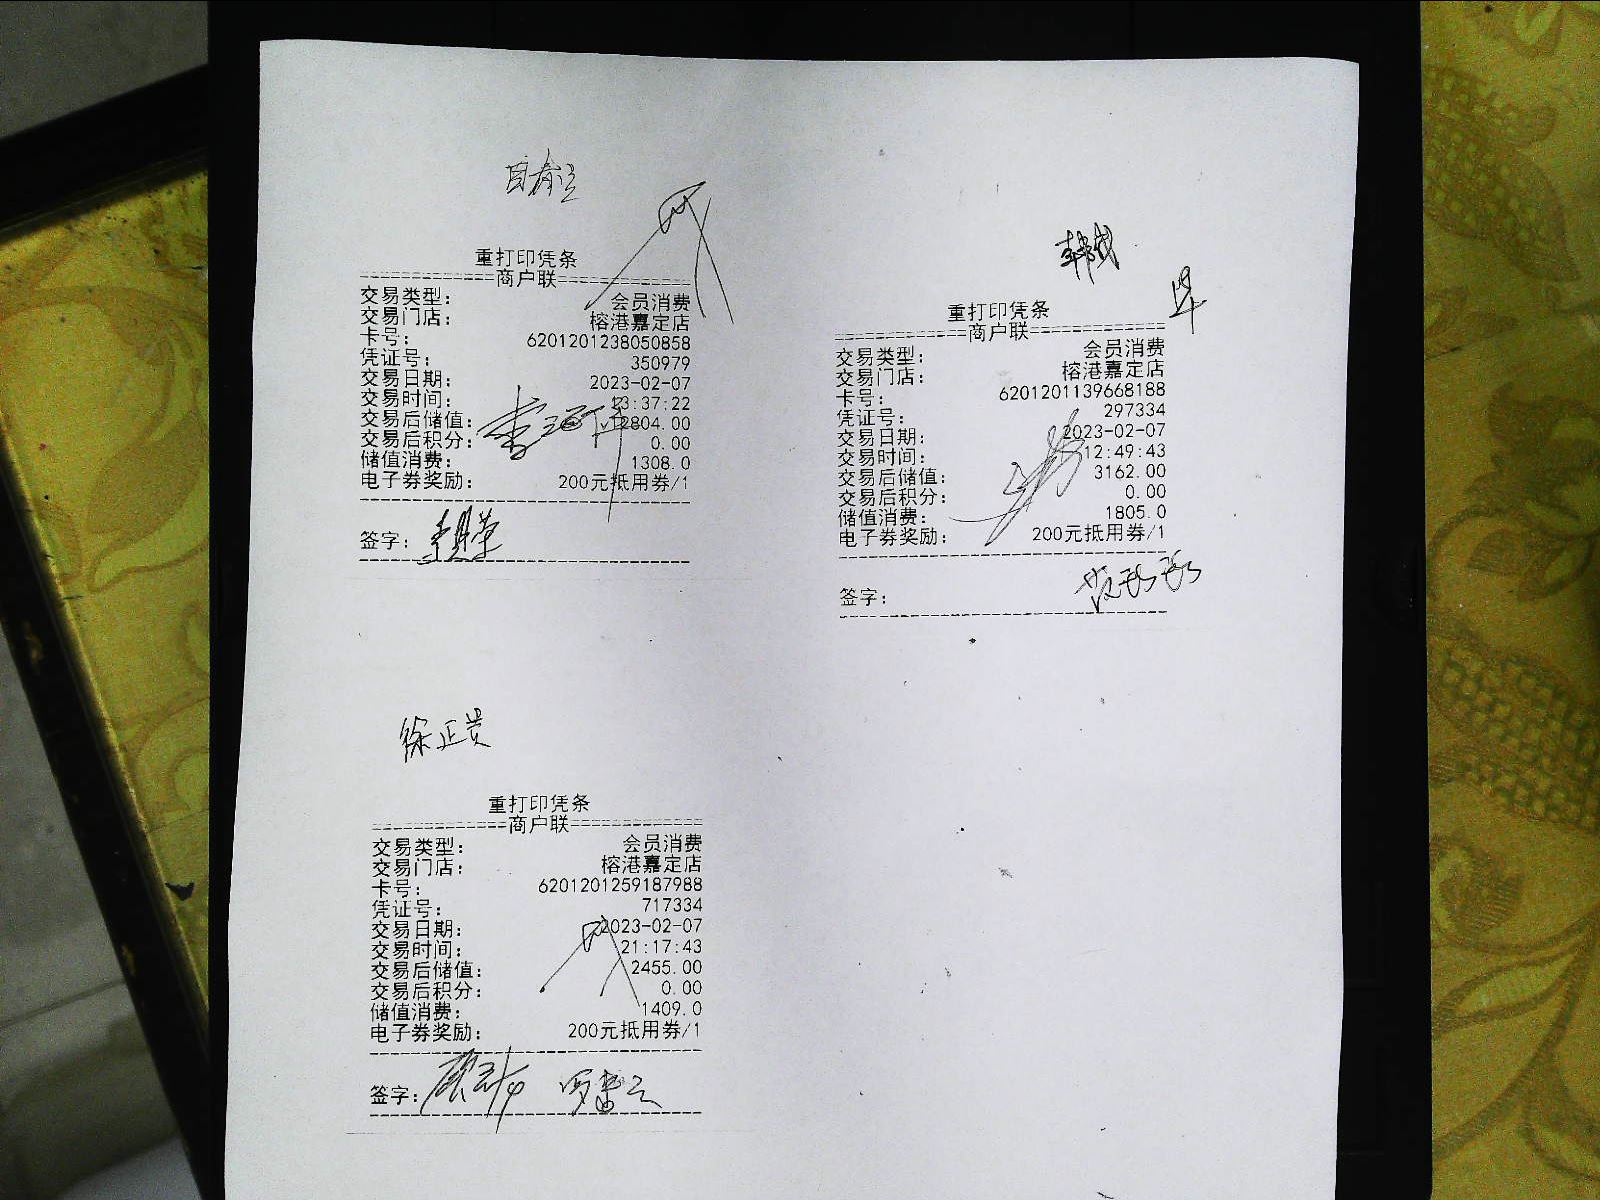 重打印凭条
============商户联============
交易类型: 会员消费
交易门店: 榕港嘉定店
卡号: 6201201238050858
凭证号: 350979
交易日期: 2023-02-07
交易时间: 13:37:22
交易后储值: 12804.00
交易后积分: 0.00
储值消费: 1308.0
电子券奖励: 200元抵用券/1
签字:
韩战
重打印凭条
============商户联============
交易类型: 会员消费
交易门店: 榕港嘉定店
卡号: 6201201139668188
凭证号: 297334
交易日期: 2023-02-07
交易时间: 12:49:43
交易后储值: 3162.00
交易后积分: 0.00
储值消费: 1805.0
电子券奖励: 200元抵用券/1
签字:
徐正贵
重打印凭条
============商户联============
交易类型: 会员消费
交易门店: 榕港嘉定店
卡号: 6201201259187988
凭证号: 717334
交易日期: 2023-02-07
交易时间: 21:17:43
交易后储值: 2455.00
交易后积分: 0.00
储值消费: 1409.0
电子券奖励: 200元抵用券/1
签字: